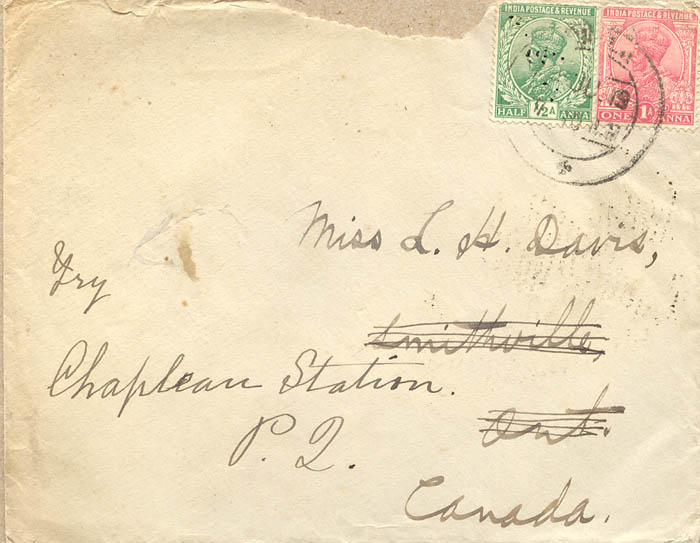 INDIA POSTAGE & REVENUE
HALF ½A ANNA
INDIA POSTAGE & REVENUE
ONE 1A ANNA
Miss L. H. Davis,
Smithville,
Ont.
Canada.
Try
Chapleau Station.
P. Q.